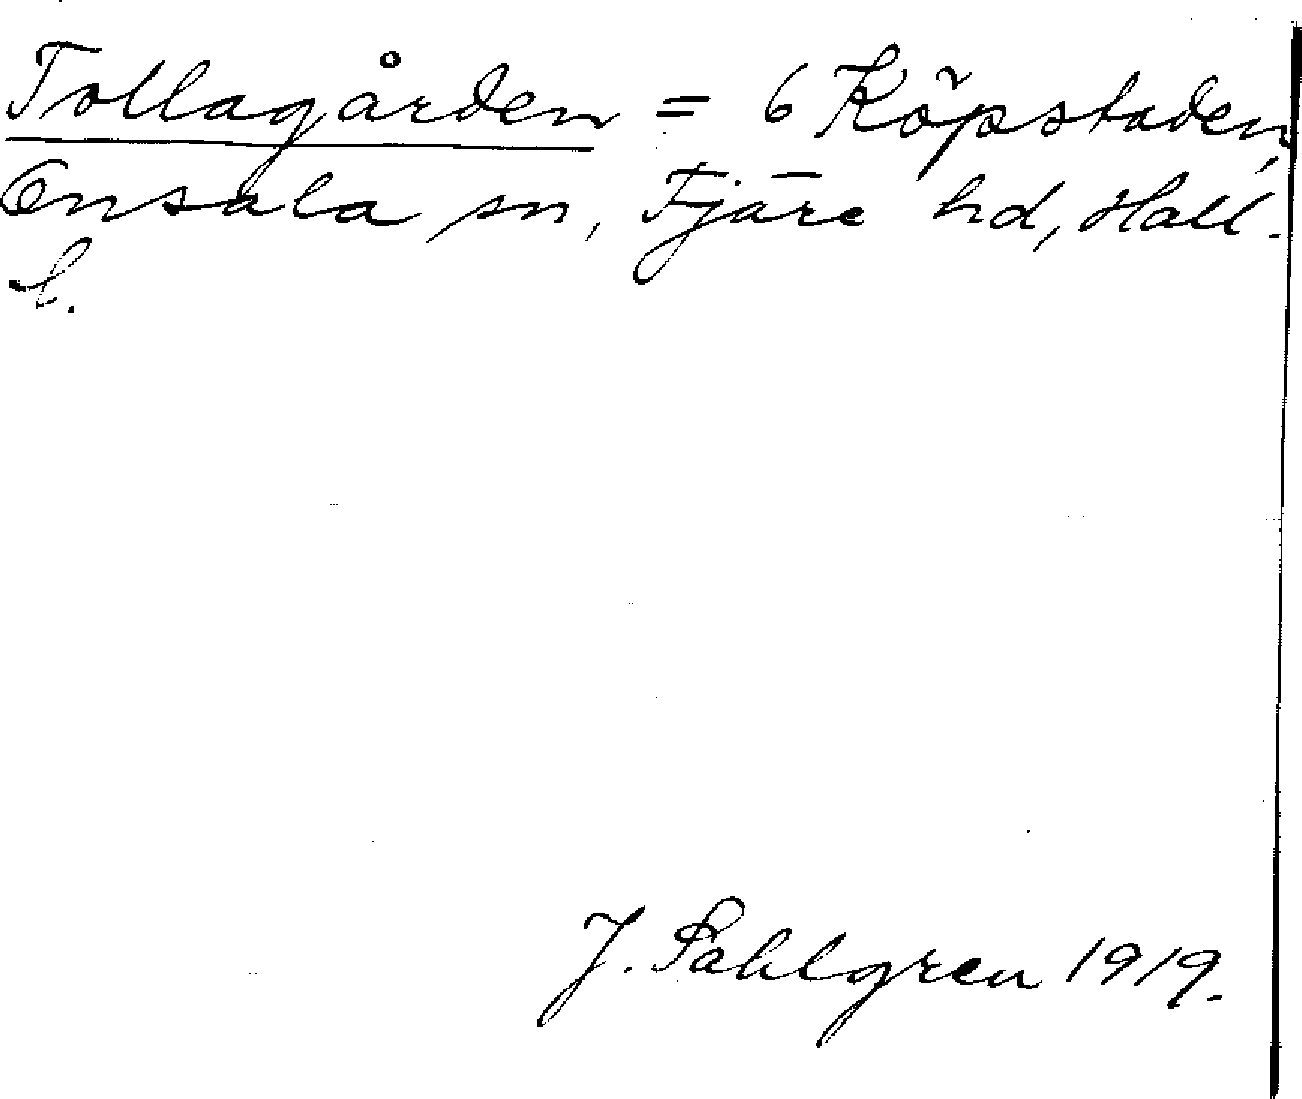 Tollagården = 6 Köpstaden,
Onsala sn, Fjäre hd, Hall.
l.
J. Sahlgren 1919.